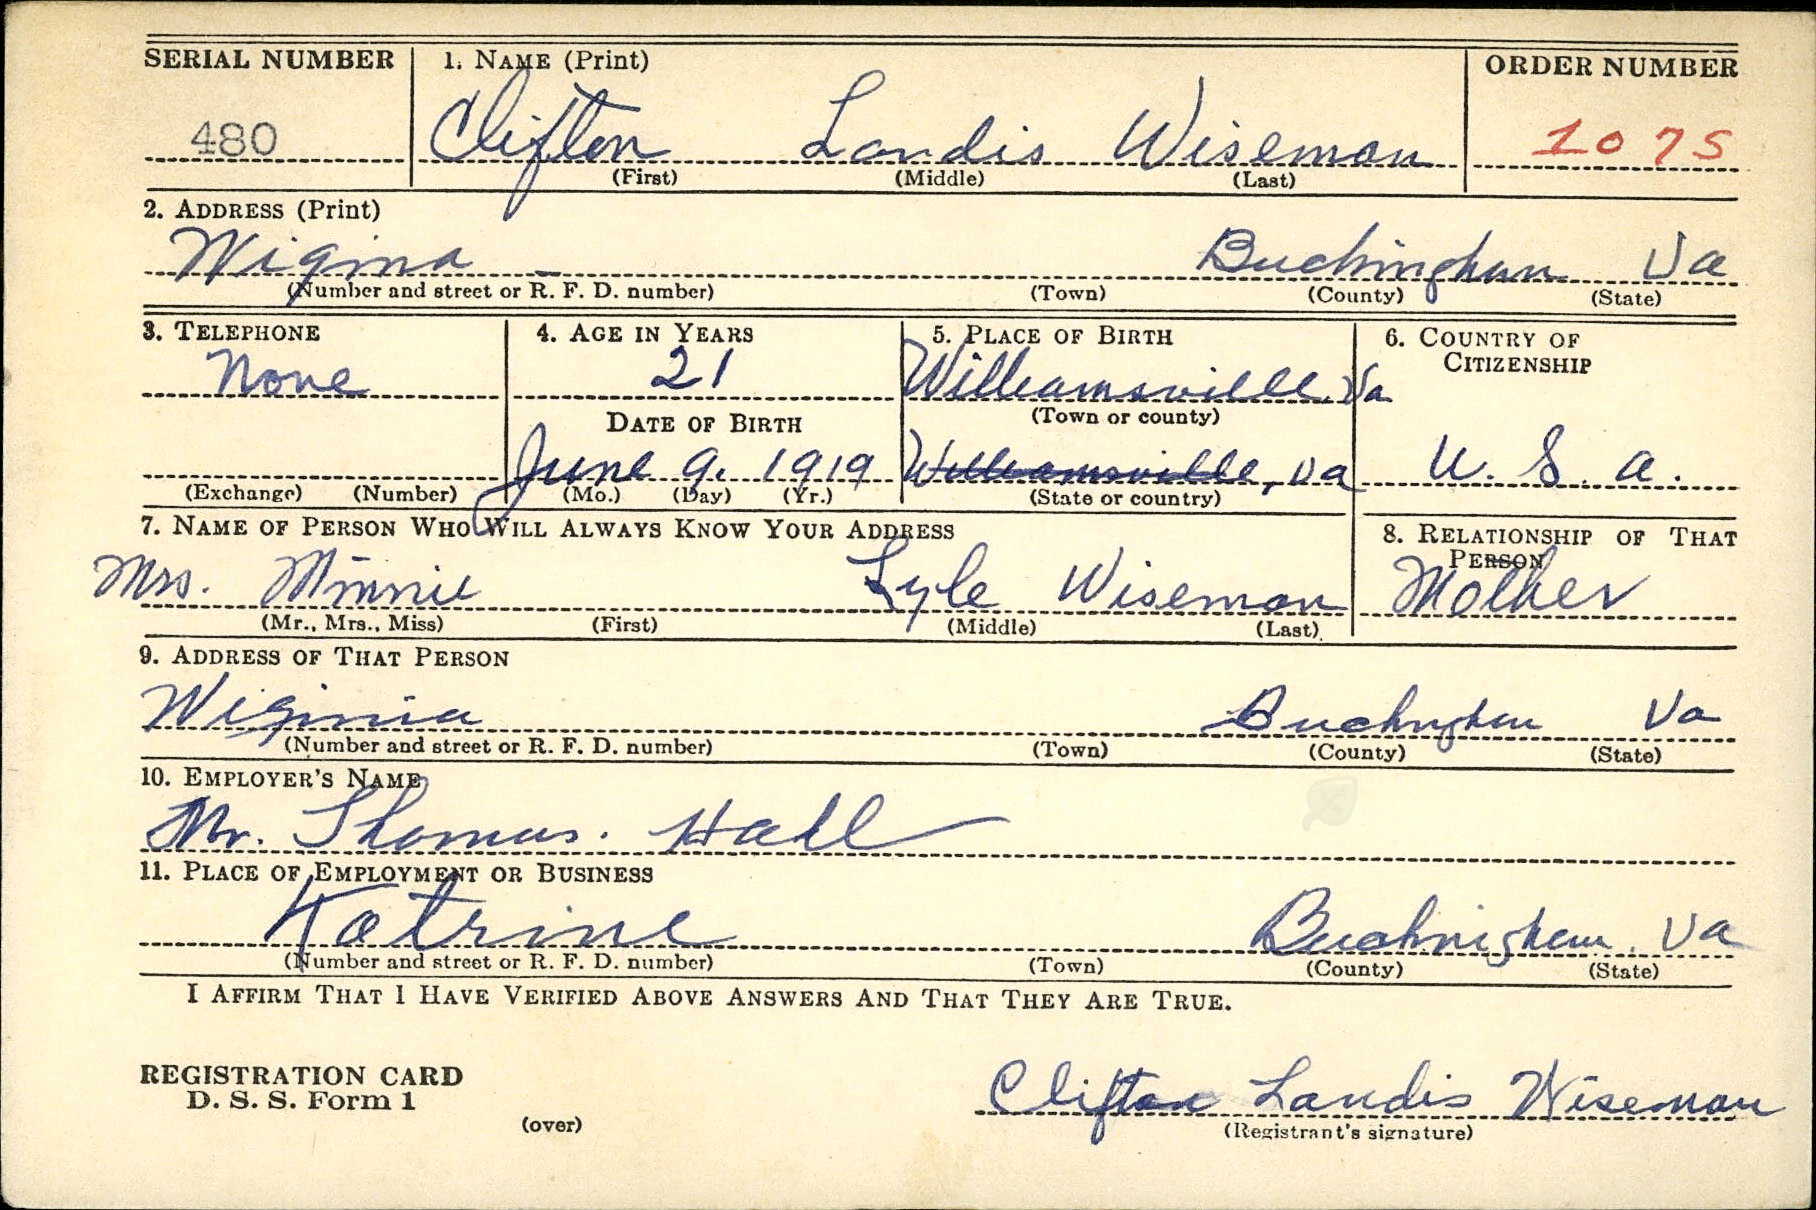 SERIAL NUMBER 1. NAME (Print) ORDER NUMBER
480 Clifton Landis Wiseman 1075
(First) (Middle) (Last)
2. ADDRESS (Print)
Buckingham Va
(Number and street or R. F. D. number) (Town) (County) (State)
3. TELEPHONE 4. AGE IN YEARS 5. PLACE OF BIRTH 6. COUNTRY OF CITIZENSHIP
None 21 Williamsville, Va
DATE OF BIRTH (Town or county)
June 9, 1919 Williamsville, Va U. S. A.
(Exchange) (Number) (Mo.) (Day) (Yr.) (State or country)
7. NAME OF PERSON WHO WILL ALWAYS KNOW YOUR ADDRESS 8. RELATIONSHIP OF THAT PERSON
Mrs. Minnie Lyle Wiseman Mother
(Mr., Mrs., Miss) (First) (Middle) (Last)
9. ADDRESS OF THAT PERSON
Buckingham Va
(Number and street or R. F. D. number) (Town) (County) (State)
10. EMPLOYER'S NAME
Mr. Thomas. Hall
11. PLACE OF EMPLOYMENT OR BUSINESS
Katrine Buckingham, Va
(Number and street or R. F. D. number) (Town) (County) (State)
I AFFIRM THAT I HAVE VERIFIED ABOVE ANSWERS AND THAT THEY ARE TRUE.
REGISTRATION CARD
D. S. S. Form 1 Clifton Landis Wiseman
(over) (Registrant's signature)